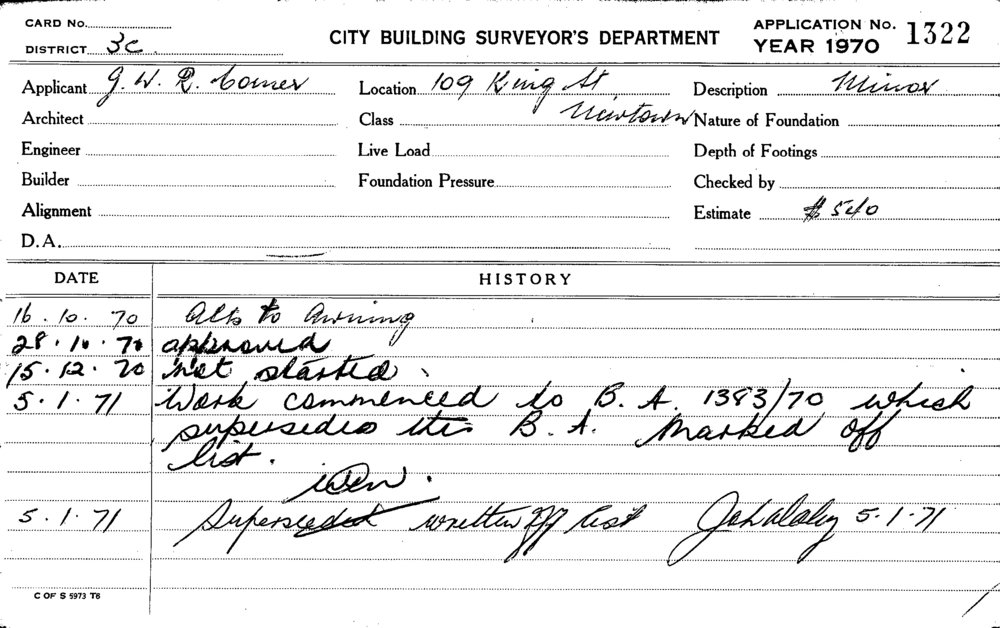 CARD No.
DISTRICT 3c
CITY BUILDING SURVEYOR'S DEPARTMENT
APPLICATION No. 1322
YEAR 1970
Applicant G. W. R. Comer
Location 109 King St
Newtown
Description Minor
Architect
Class
Nature of Foundation
Engineer
Live Load
Depth of Footings
Builder
Foundation Pressure
Checked by
Alignment
Estimate $540
D.A.
DATE HISTORY
16.10.70 Alts to Awning
28.10.70 approved
15.12.70 not started.
5.1.71 Work commenced to B.A. 1383/70 which
supersedes this B.A. Marked off
list.
5.1.71 Superseded written off list 5.1.71
C OF S 5973 T8